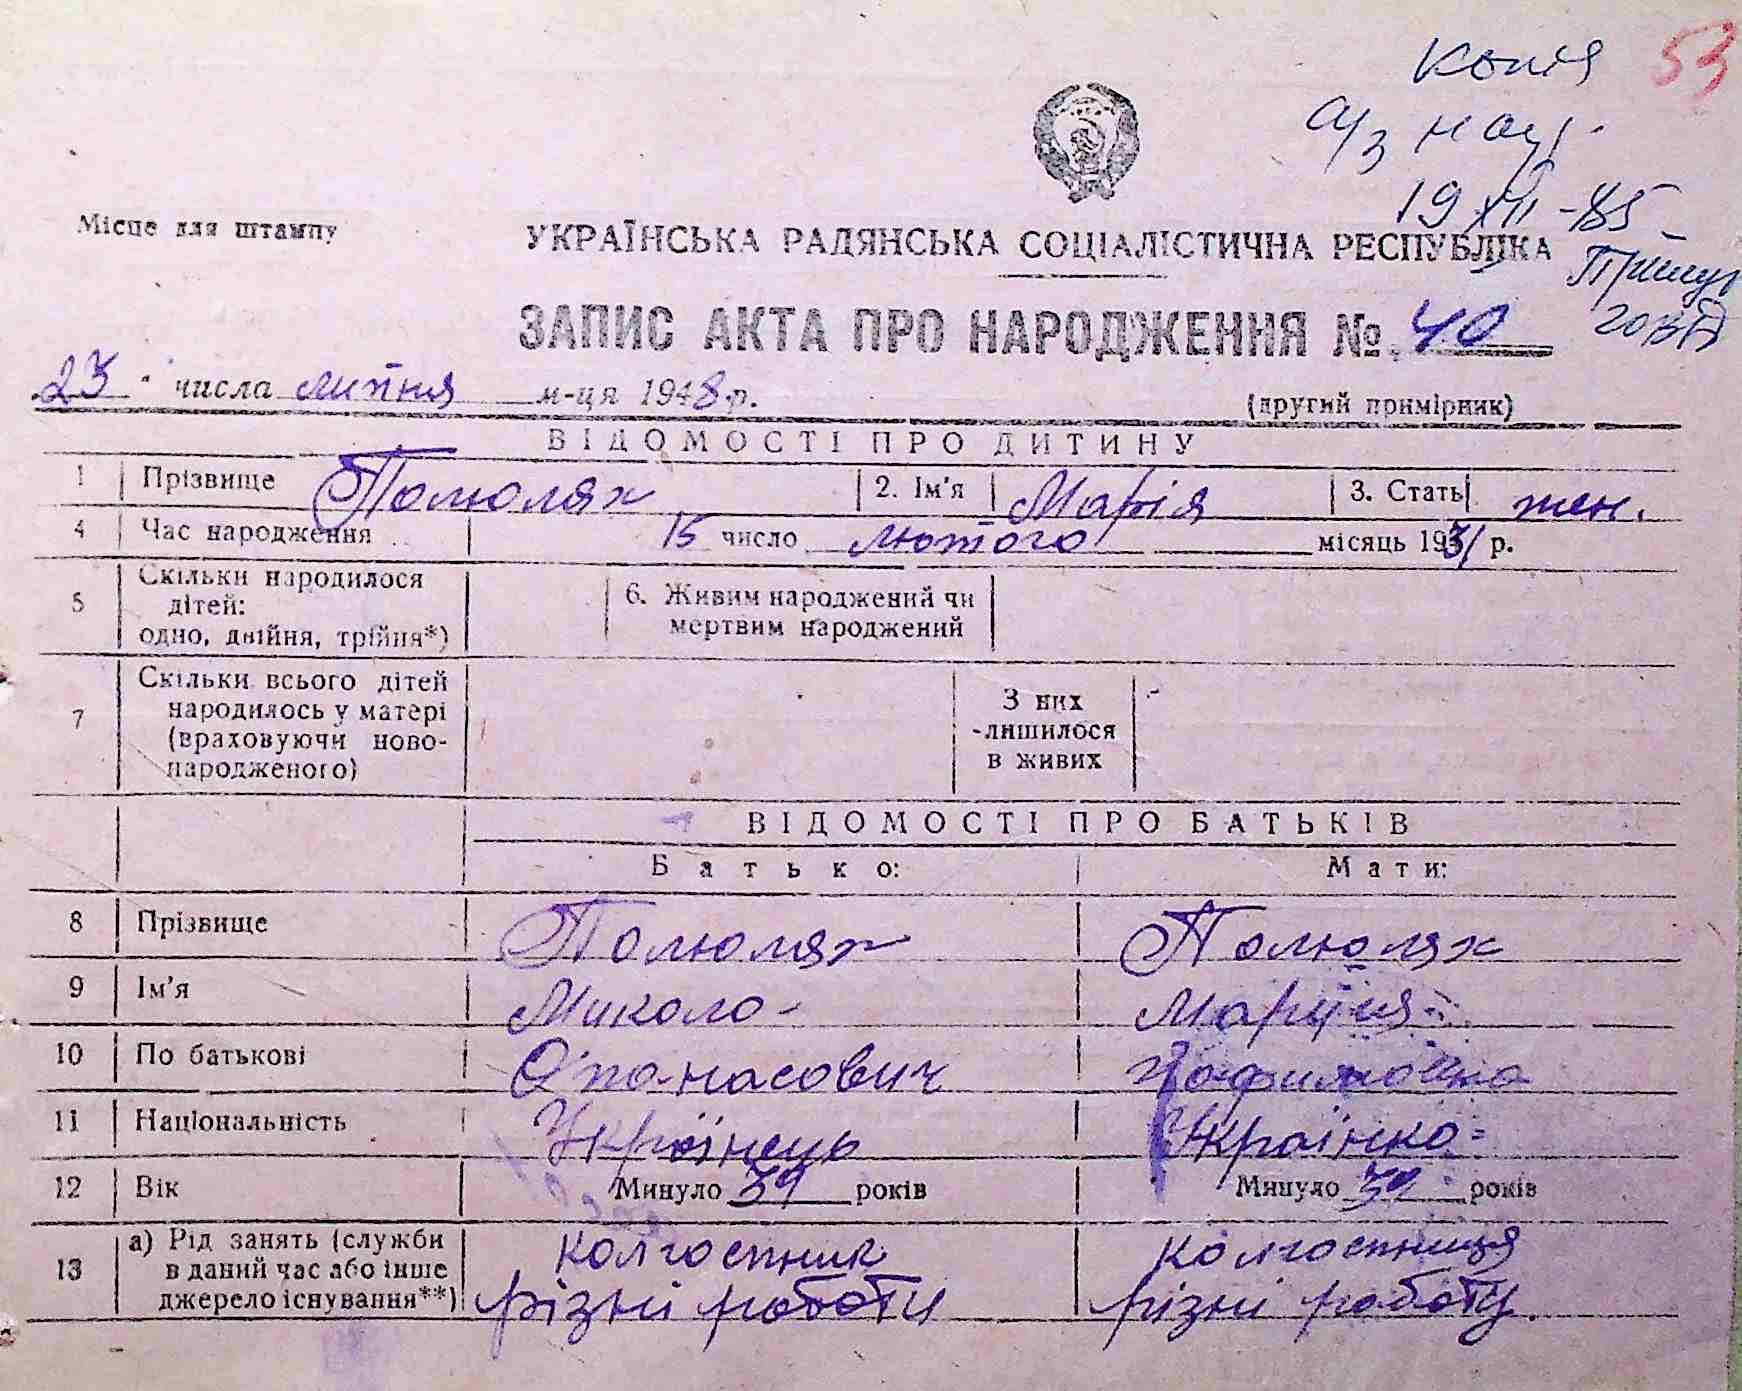 Копія 53
а/з нар.
19 XII-85
Місце для штампу
УКРАЇНСЬКА РАДЯНСЬКА СОЦІАЛІСТИЧНА РЕСПУБЛІКА
ЗАПИС АКТА ПРО НАРОДЖЕННЯ № 40
23 числа липня м-ця 1948 р.
(другий примірник)
ВІДОМОСТІ ПРО ДИТИНУ
1 Прізвище Полюлях 2. Ім'я Марія 3. Стать жен.
4 Час народження 15 число лютого місяць 1931 р.
5 Скільки народилося дітей: одно, двійня, трійня*) 6. Живим народжений чи мертвим народжений
7 Скільки всього дітей народилось у матері (враховуючи ново-народженого) З них лишилося в живих
ВІДОМОСТІ ПРО БАТЬКІВ
Батько: Мати:
8 Прізвище Полюлях Полюлях
9 Ім'я Микола
10 По батькові Опанасович
11 Національність Українець Українка
12 Вік Минуло 39 років Минуло 39 років
13 а) Рід занять (служби в даний час або інше джерело існування**) колгоспник різні роботи колгоспниця різні роботи.